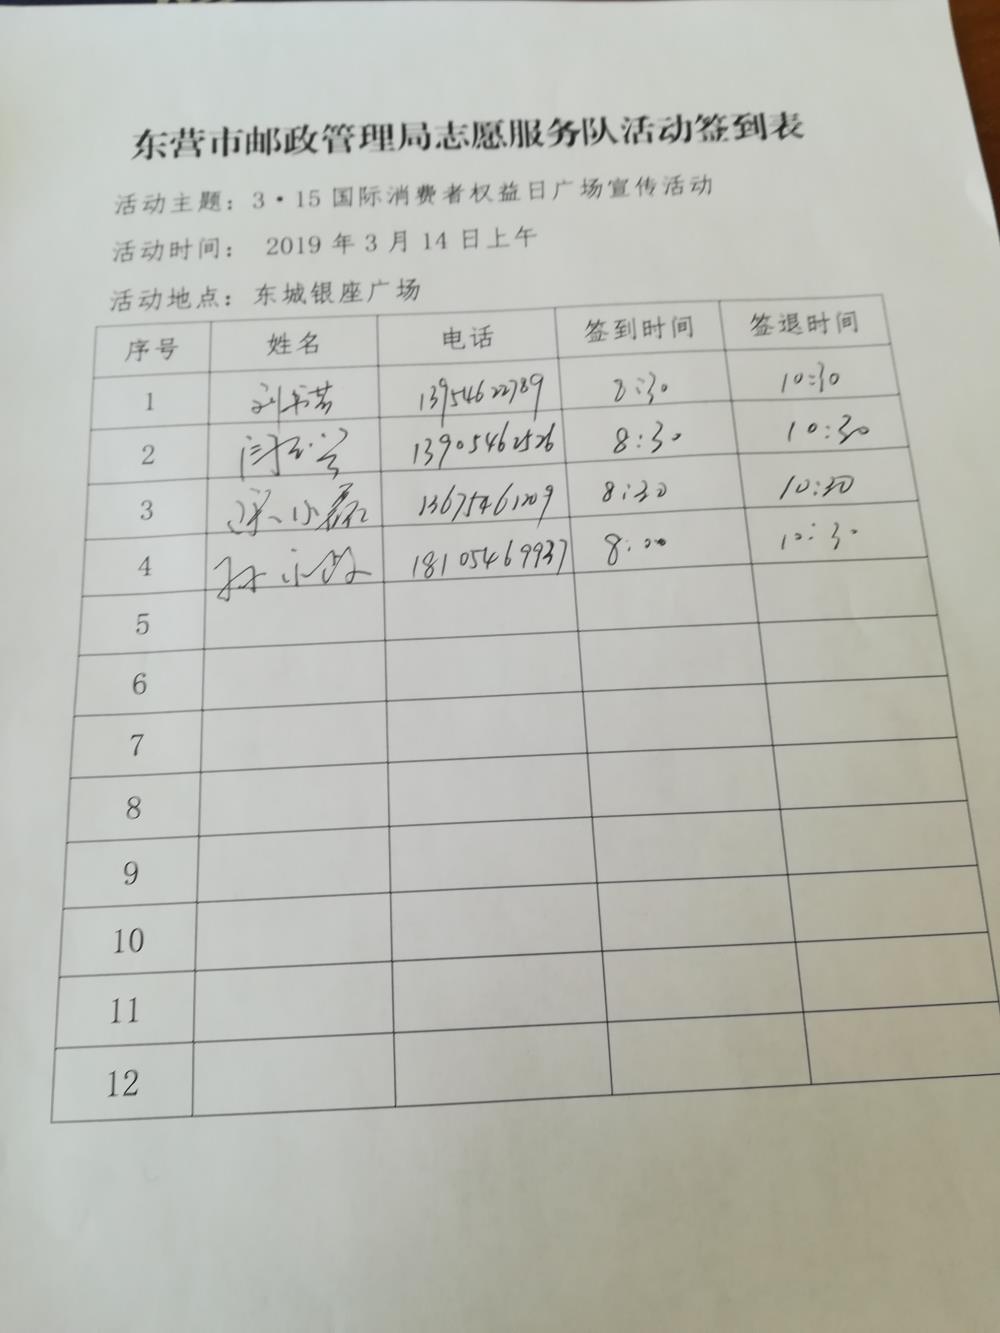 东营市邮政管理局志愿服务队活动签到表
活动主题：3·15国际消费者权益日广场宣传活动
活动时间： 2019年3月14日上午
活动地点：东城银座广场
序号 姓名 电话 签到时间 签退时间
1 13954622789 8:30 10:30
2 13905462526 8:30 10:30
3 13675461209 8:30 10:30
4 18105469937 8:00 10:30
5
6
7
8
9
10
11
12